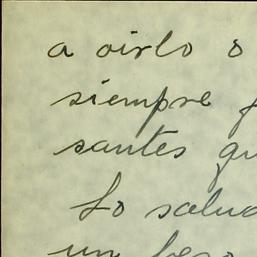 a oirlo o
siempre
santes qu
Lo salud
un beso